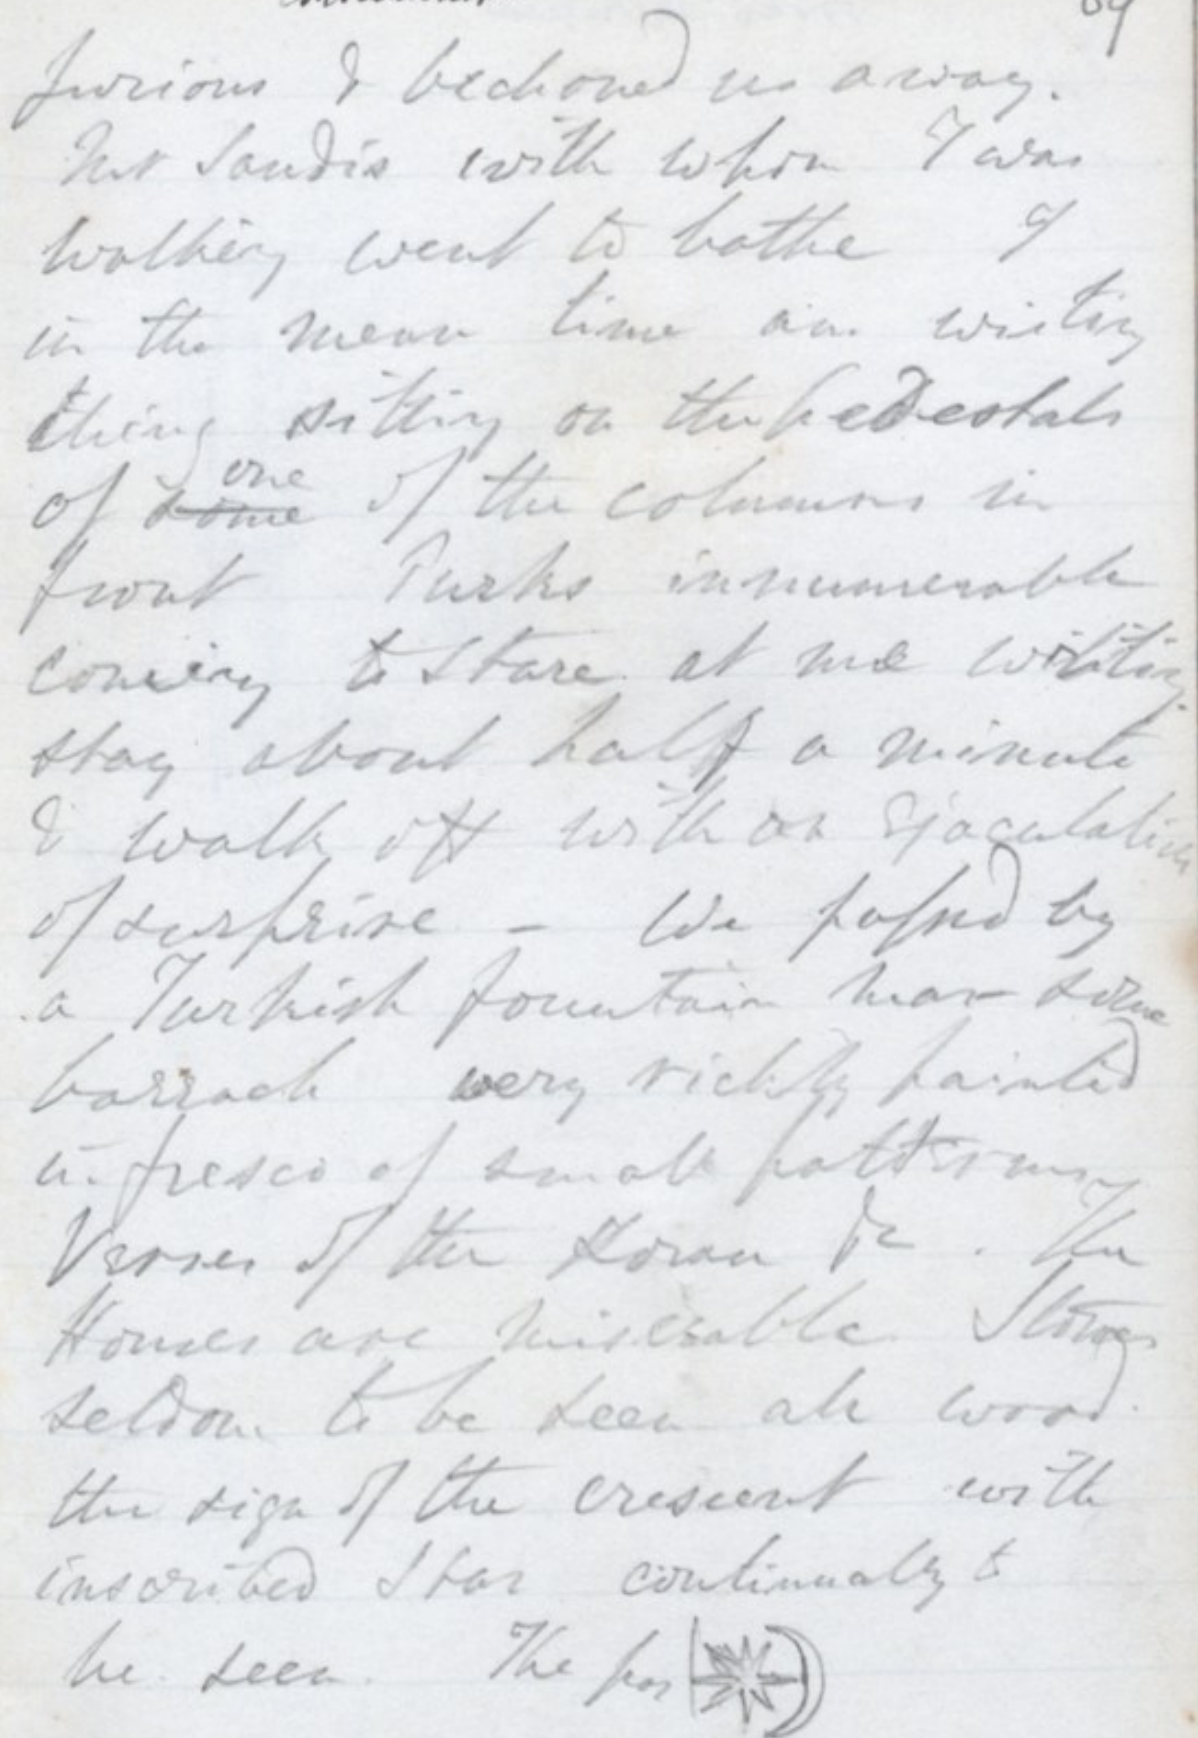 89
furious & beckoned us away.
Mr Sandis with whom I was
walking went to bathe I
in the mean time am writing
this sitting on the pedestals
of some one of the columns in
front Turks innumerable
coming to stare at me writing
stay about half a minute
& walk off with an Ejaculation
of surprise – We passed by
a Turkish fountain near some
barrack very richly painted
in fresco of small patterns
Verses of the Koran &c. The
Houses are miserable Stones
seldom to be seen all wood.
the sign of the crescent with
inscribed Star continually to
be seen. The